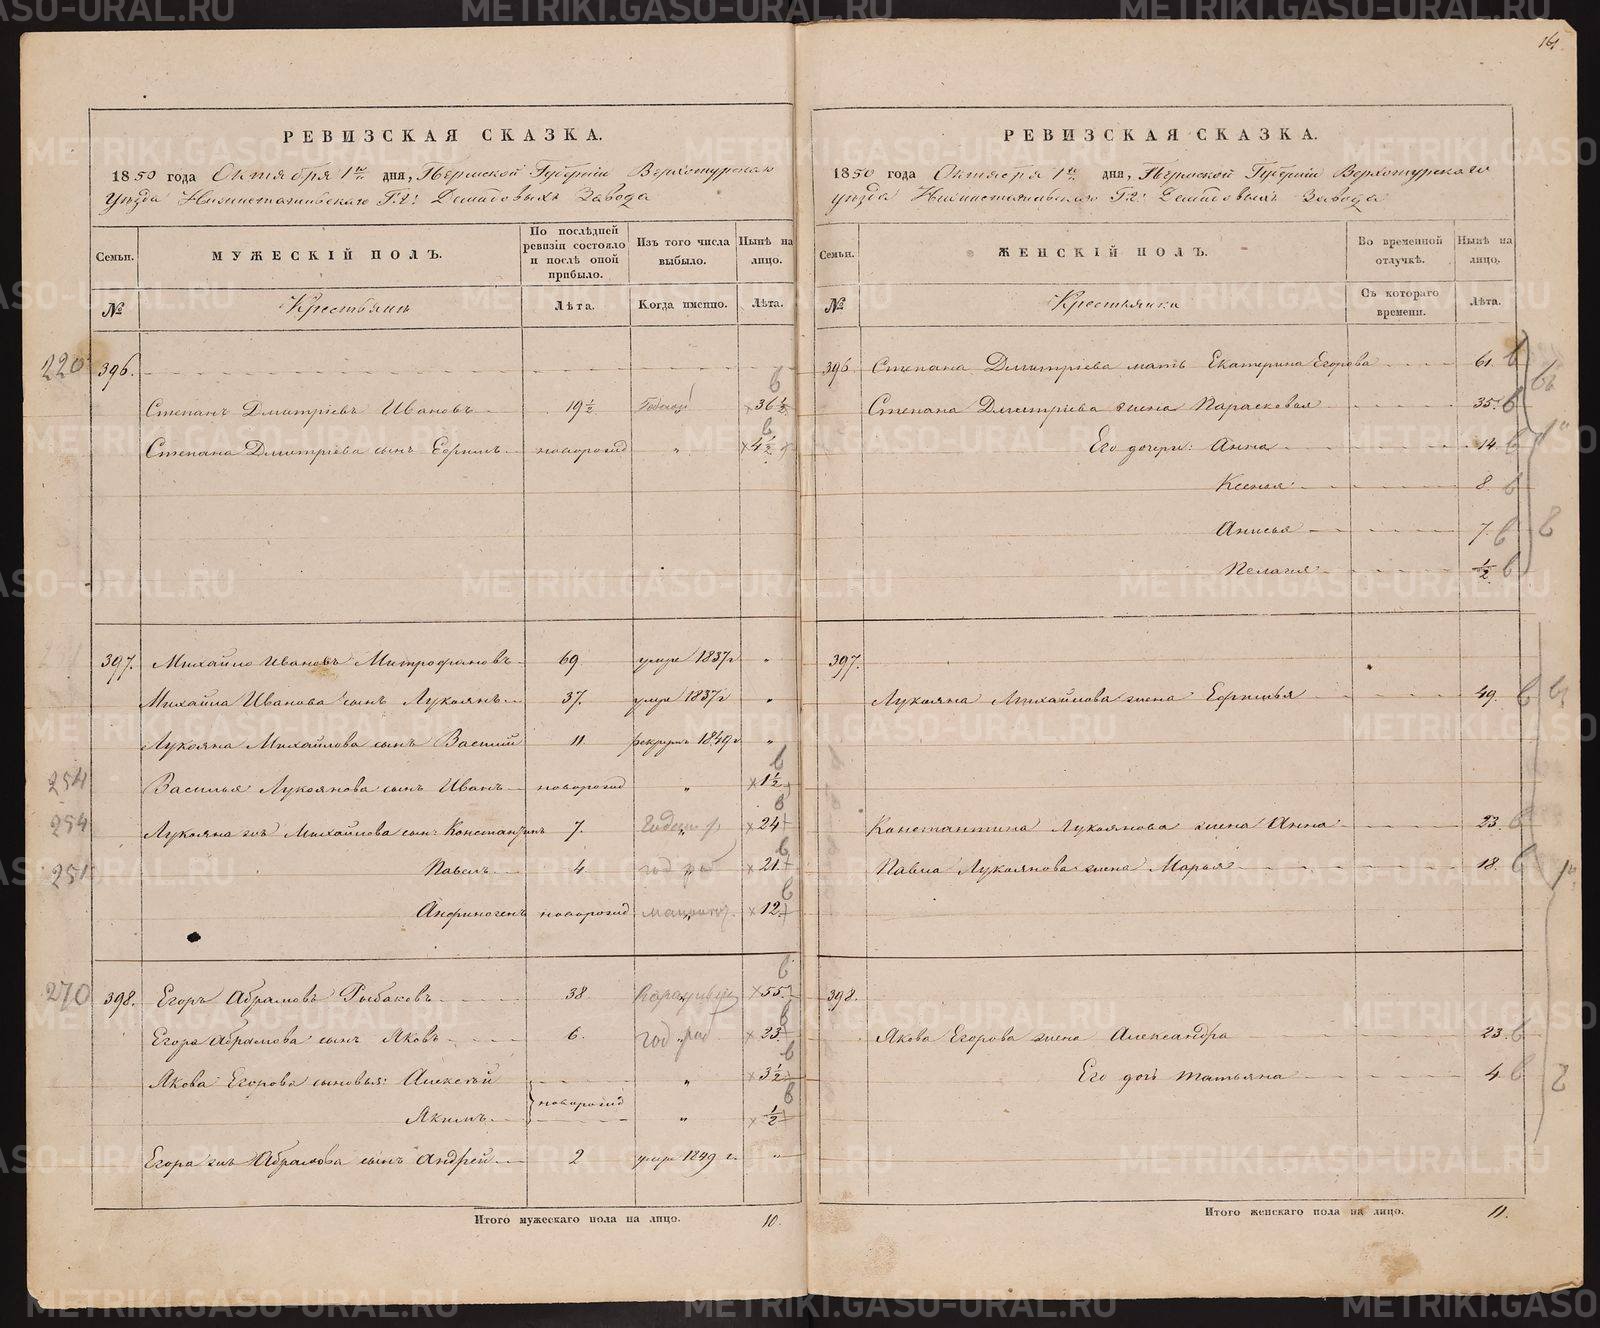 161
РЕВИЗСКАЯ СКАЗКА.
1850 года Октября 1го дня, Пермской Губернiи Верхотурскаго
уѣзда Нижнетагильскаго Г.г. Демидовыхъ Завода
Семьи.
МУЖЕСКIЙ ПОЛЪ.
По послѣдней ревизiи состояло и послѣ оной прибыло.
Изъ того числа выбыло.
Нынѣ на лицо.
№
Крестьянъ
Лѣта.
Когда именно.
Лѣта.
220
396.
Степанъ Дмитрiевъ Ивановъ 19½ 36½
Степана Дмитрiева сынъ Ефимъ новорожд " 4½
397. Михайло Ивановъ Митрофановъ 69 умре 1837г "
Михайла Иванова сынъ Лукоянъ 37. умре 1837г "
Лукояна Михайлова сынъ Василiй 11 рекрутъ 1849г "
254 Василья Лукоянова сынъ Иванъ новорожд " 1½
254 Лукояна жъ Михайлова сын: Константинъ 7. " 24
251 Павелъ 4 год раб 21
Анфиногенъ новорожд 12
270 398. Егоръ Абрамовъ Рыбаковъ 38 55
Егора Абрамова сынъ Яковъ 6. год раб 23
Якова Егорова сыновья: Алексѣй " 3½
новорожд
Якимъ " ½
Егора жъ Абрамова сынъ Андрей 2 умре 1849 г. "
Итого мужескаго пола на лицо. 10.
РЕВИЗСКАЯ СКАЗКА.
1850 года Октября 1го дня, Пермской Губернiи Верхотурскаго
уѣзда Нижнетагильскаго Г.г. Демидовыхъ Завода
Семьи.
ЖЕНСКIЙ ПОЛЪ.
Во временной отлучкѣ.
Нынѣ на лицо.
№
Крестьянки
Съ котораго времени.
Лѣта.
396 Степана Дмитрiева мать Екатерина Егорова 61
Степана Дмитрiева жена Парасковья 35
Его дочери: Анна 14
Ксенья 8
Анисья 7
Пелагея ½
397.
Лукояна Михайлова жена Ефимья 49
Константина Лукоянова жена Анна 23
Павла Лукоянова жена Марья 18
398.
Якова Егорова жена Александра 23
Его дочь Татьяна 4
Итого женскаго пола на лицо. 11.
METRIKI.GASO-URAL.RU